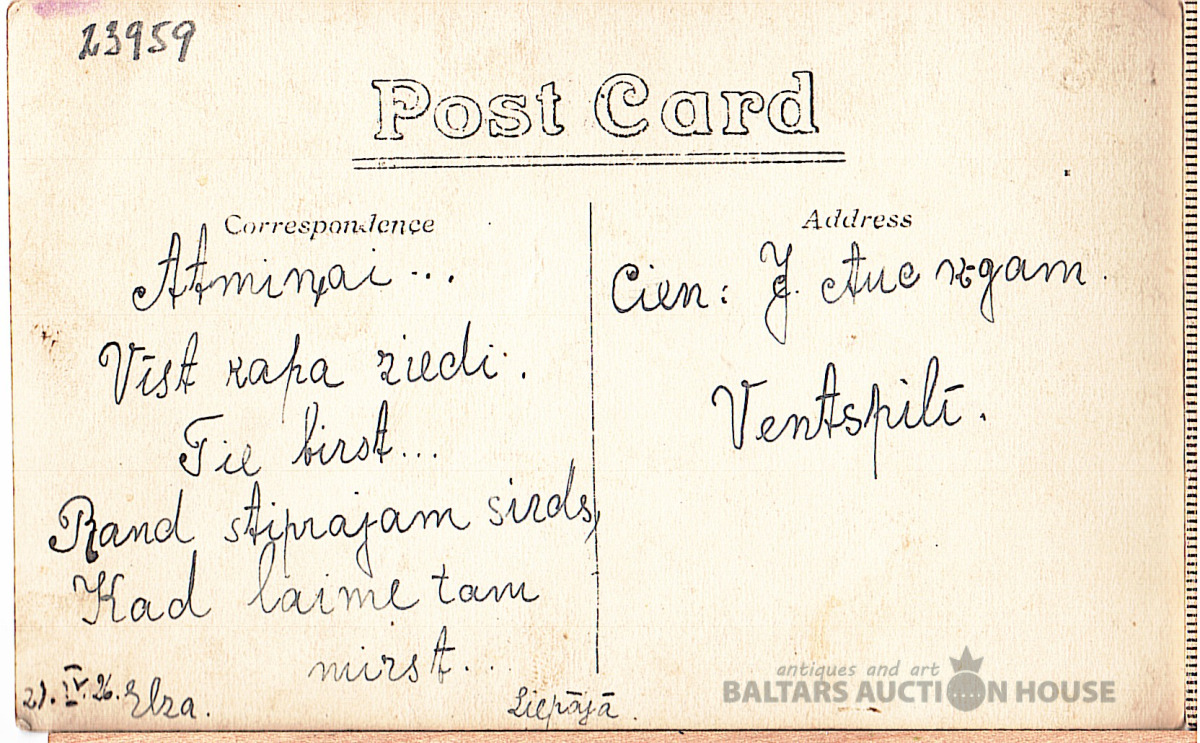 23959
Post Card
Correspondence
Atmiņai...
Vīst kapa ziedi.
Tie birst...
Raud stiprajam sirds,
Kad laime tam
mirst...
21. IV. 26. Elza.
Liepājā.
Address
Cien: J.
Ventspilī.
antiques and art
BALTARS AUCTION HOUSE